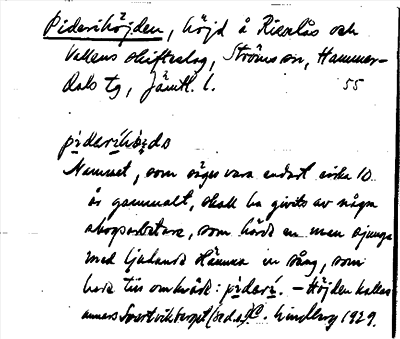 Piderihöjden, höjd å Risselås och
Vallens skifteslag, Ströms sn, Hammer-
dals tg, Jämtl. l. 55
pìderíhö̀ịdə
Namnet, som säges vara endast cirka 10
år gammalt, skall ha givits av några
skogsarbetare, som hörde en man sjunga
med ljudande stämma en sång, som
hade till omkväde: pìderí. – Höjden kallas
annars Svartviksberget (se d.o.). C. Lindberg 1929.